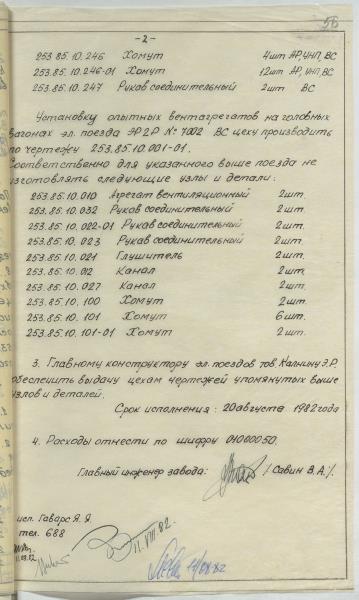 56
- 2 -
253.85.10.246 Хомут 4шт АР,ЦНП,ВС
253.85.10.246-01 Хомут 12шт АР,ЦНП,ВС
253.85.10.247 Рукав соединительный 2шт ВС
Установку опытных вентагрегатов на головных
вагонах эл. поезда ЭР2Р №7002 ВС цеху производить
по чертежу 253.85.10.001-01.
Соответственно для указанного выше поезда не
изготовлять следующие узлы и детали:
253.85.10.010 Агрегат вентиляционный 2шт.
253.85.10.032 Рукав соединительный 2шт.
253.85.10.022-01 Рукав соединительный 2шт.
253.85.10.023 Рукав соединительный 2шт.
253.85.10.021 Глушитель 2шт.
253.85.10.012 Канал 2шт.
253.85.10.027 Канал 2шт.
253.85.10.100 Хомут 2шт.
253.85.10.101 Хомут 6шт.
253.85.10.101-01 Хомут 2шт.
3. Главному конструктору эл. поездов тов. Калниню Э.Р.
обеспечить выдачу цехам чертежей упомянутых выше
узлов и деталей.
Срок исполнения: 20 августа 1982 года
4. Расходы отнести по шифру 01000050.
Главный инженер завода: /Савин В.А./.
исп. Гаварс Я.Я.
тел. 688
11.08.82
11.VIII.82.